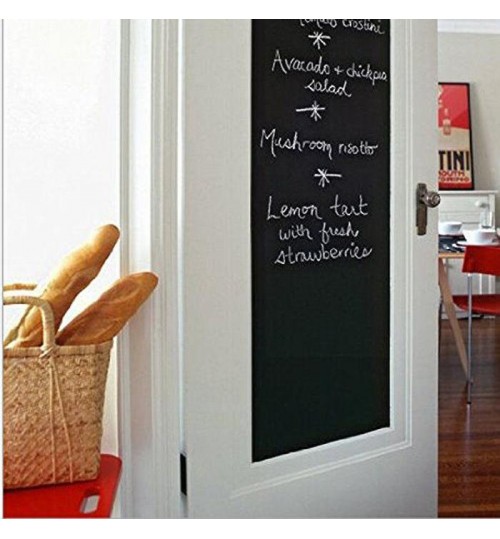 crostini
Avacado + chickpea
salad
Mushroom risotto
Lemon tart
with fresh
strawberries
TINI